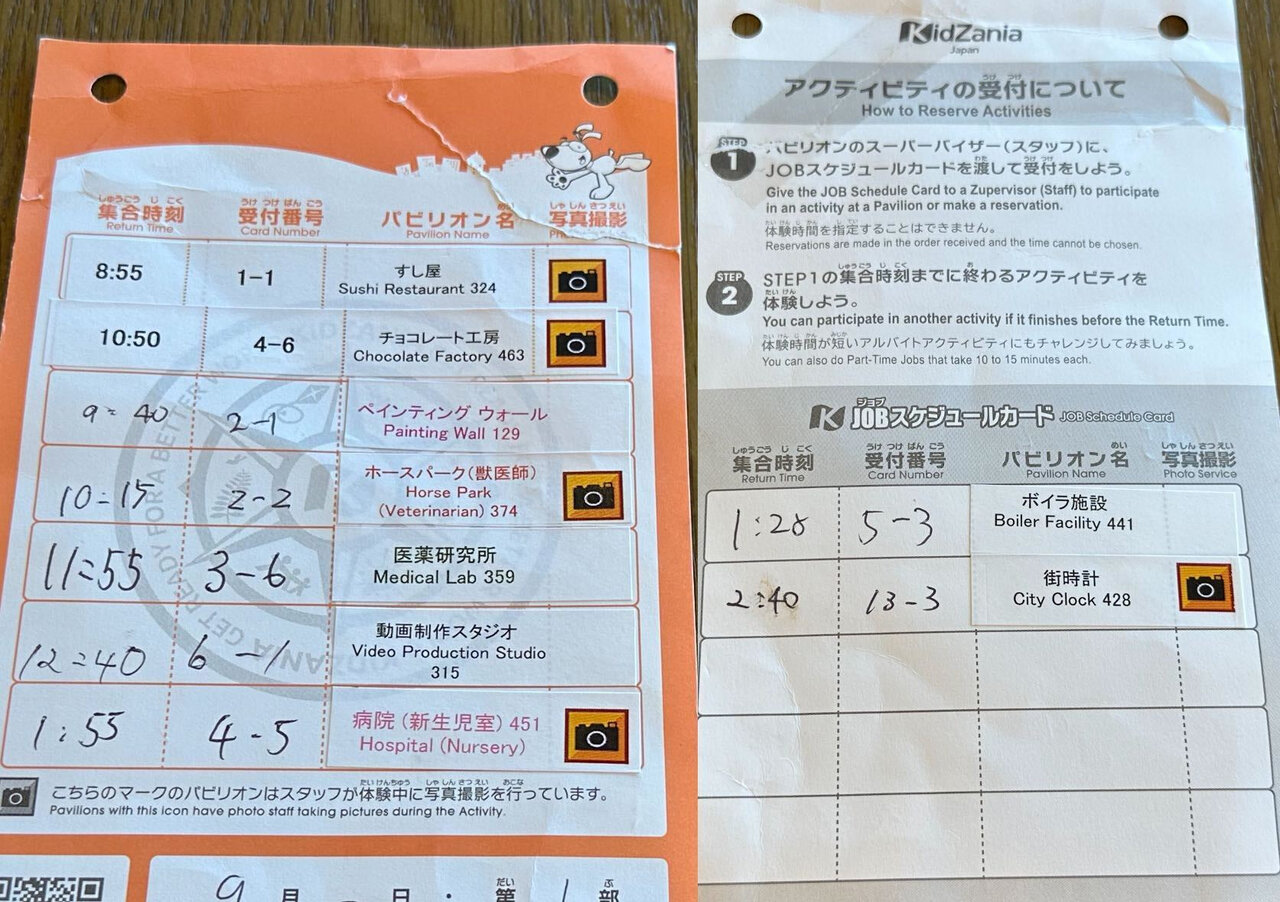 しゅうごう じ こく
うけ つけ ばん ごう
めい
しゃ しん さつ えい
集合時刻 受付番号 パビリオン名 写真撮影
Return Time Card Number Pavilion Name
8:55 1-1 すし屋
Sushi Restaurant 324
10:50 4-6 チョコレート工房
Chocolate Factory 463
9:40 2-1 ペインティング ウォール
Painting Wall 129
10:15 2-2 ホースパーク(獣医師)
Horse Park
(Veterinarian) 374
11:55 3-6 医薬研究所
Medical Lab 359
12:40 6-1 動画制作スタジオ
Video Production Studio
315
1:55 4-5 病院(新生児室) 451
Hospital (Nursery)
たい けんちゅう しゃ しん さつ えい おこな
こちらのマークのパビリオンはスタッフが体験中に写真撮影を行っています。
Pavilions with this icon have photo staff taking pictures during the Activity.
だい ぶ
9月 日・第1部
KidZania
Japan
うけ つけ
アクティビティの受付について
How to Reserve Activities
STEP
1
パビリオンのスーパーバイザー(スタッフ)に、
わた うけ つけ
JOBスケジュールカードを渡して受付をしよう。
Give the JOB Schedule Card to a Zupervisor (Staff) to participate
in an activity at a Pavilion or make a reservation.
たい けん じ かん し てい
体験時間を指定することはできません。
Reservations are made in the order received and the time cannot be chosen.
STEP
2
しゅうごう じ こく お
STEP1の集合時刻までに終わるアクティビティを
たい けん
体験しよう。
You can participate in another activity if it finishes before the Return Time.
たい けん じ かん みじか
体験時間が短いアルバイトアクティビティにもチャレンジしてみましょう。
You can also do Part-Time Jobs that take 10 to 15 minutes each.
ジョブ
JOBスケジュールカード JOB Schedule Card
しゅうごう じ こく
うけ つけ ばん ごう
めい
しゃ しん さつ えい
集合時刻 受付番号 パビリオン名 写真撮影
Return Time Card Number Pavilion Name Photo Service
1:28 5-3 ボイラ施設
Boiler Facility 441
2:40 13-3 街時計
City Clock 428